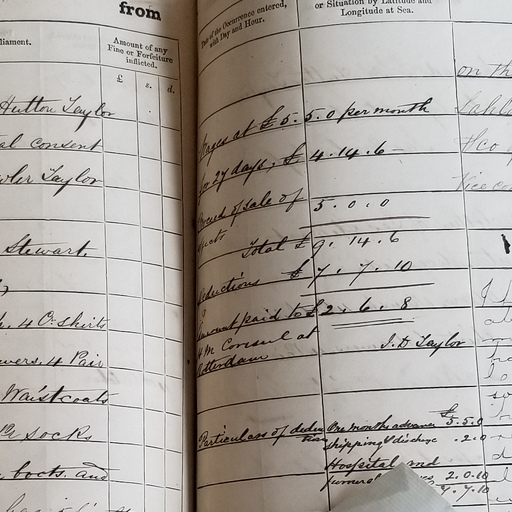 from
liament.
Amount of any
Fine or Forfeiture
inflicted.
£ s. d.
Hutton Taylor
al consent
wler Taylor
Stewart,
4 O. Shirts
wers, 4 Pair
Waistcoats
12 socks
boots, and
Date of the Occurrence entered,
with Day and Hour.
or Situation by Latitude and
Longitude at Sea.
Wages at £5.5.0 per month
for 27 days, £ 4.14.6
Proceed of sale of 5.0.0
effects
Total £ 9.14.6
Deductions £ 7.7.10
Amount paid to £2.6.8
H M Consul at
Rotterdam
J. H Taylor
Particulars of deduc
tion
One months advance £5.5.0
Shipping & discharge .2.0
Hospital and
funeral 2.0.10
7.7.10
on th